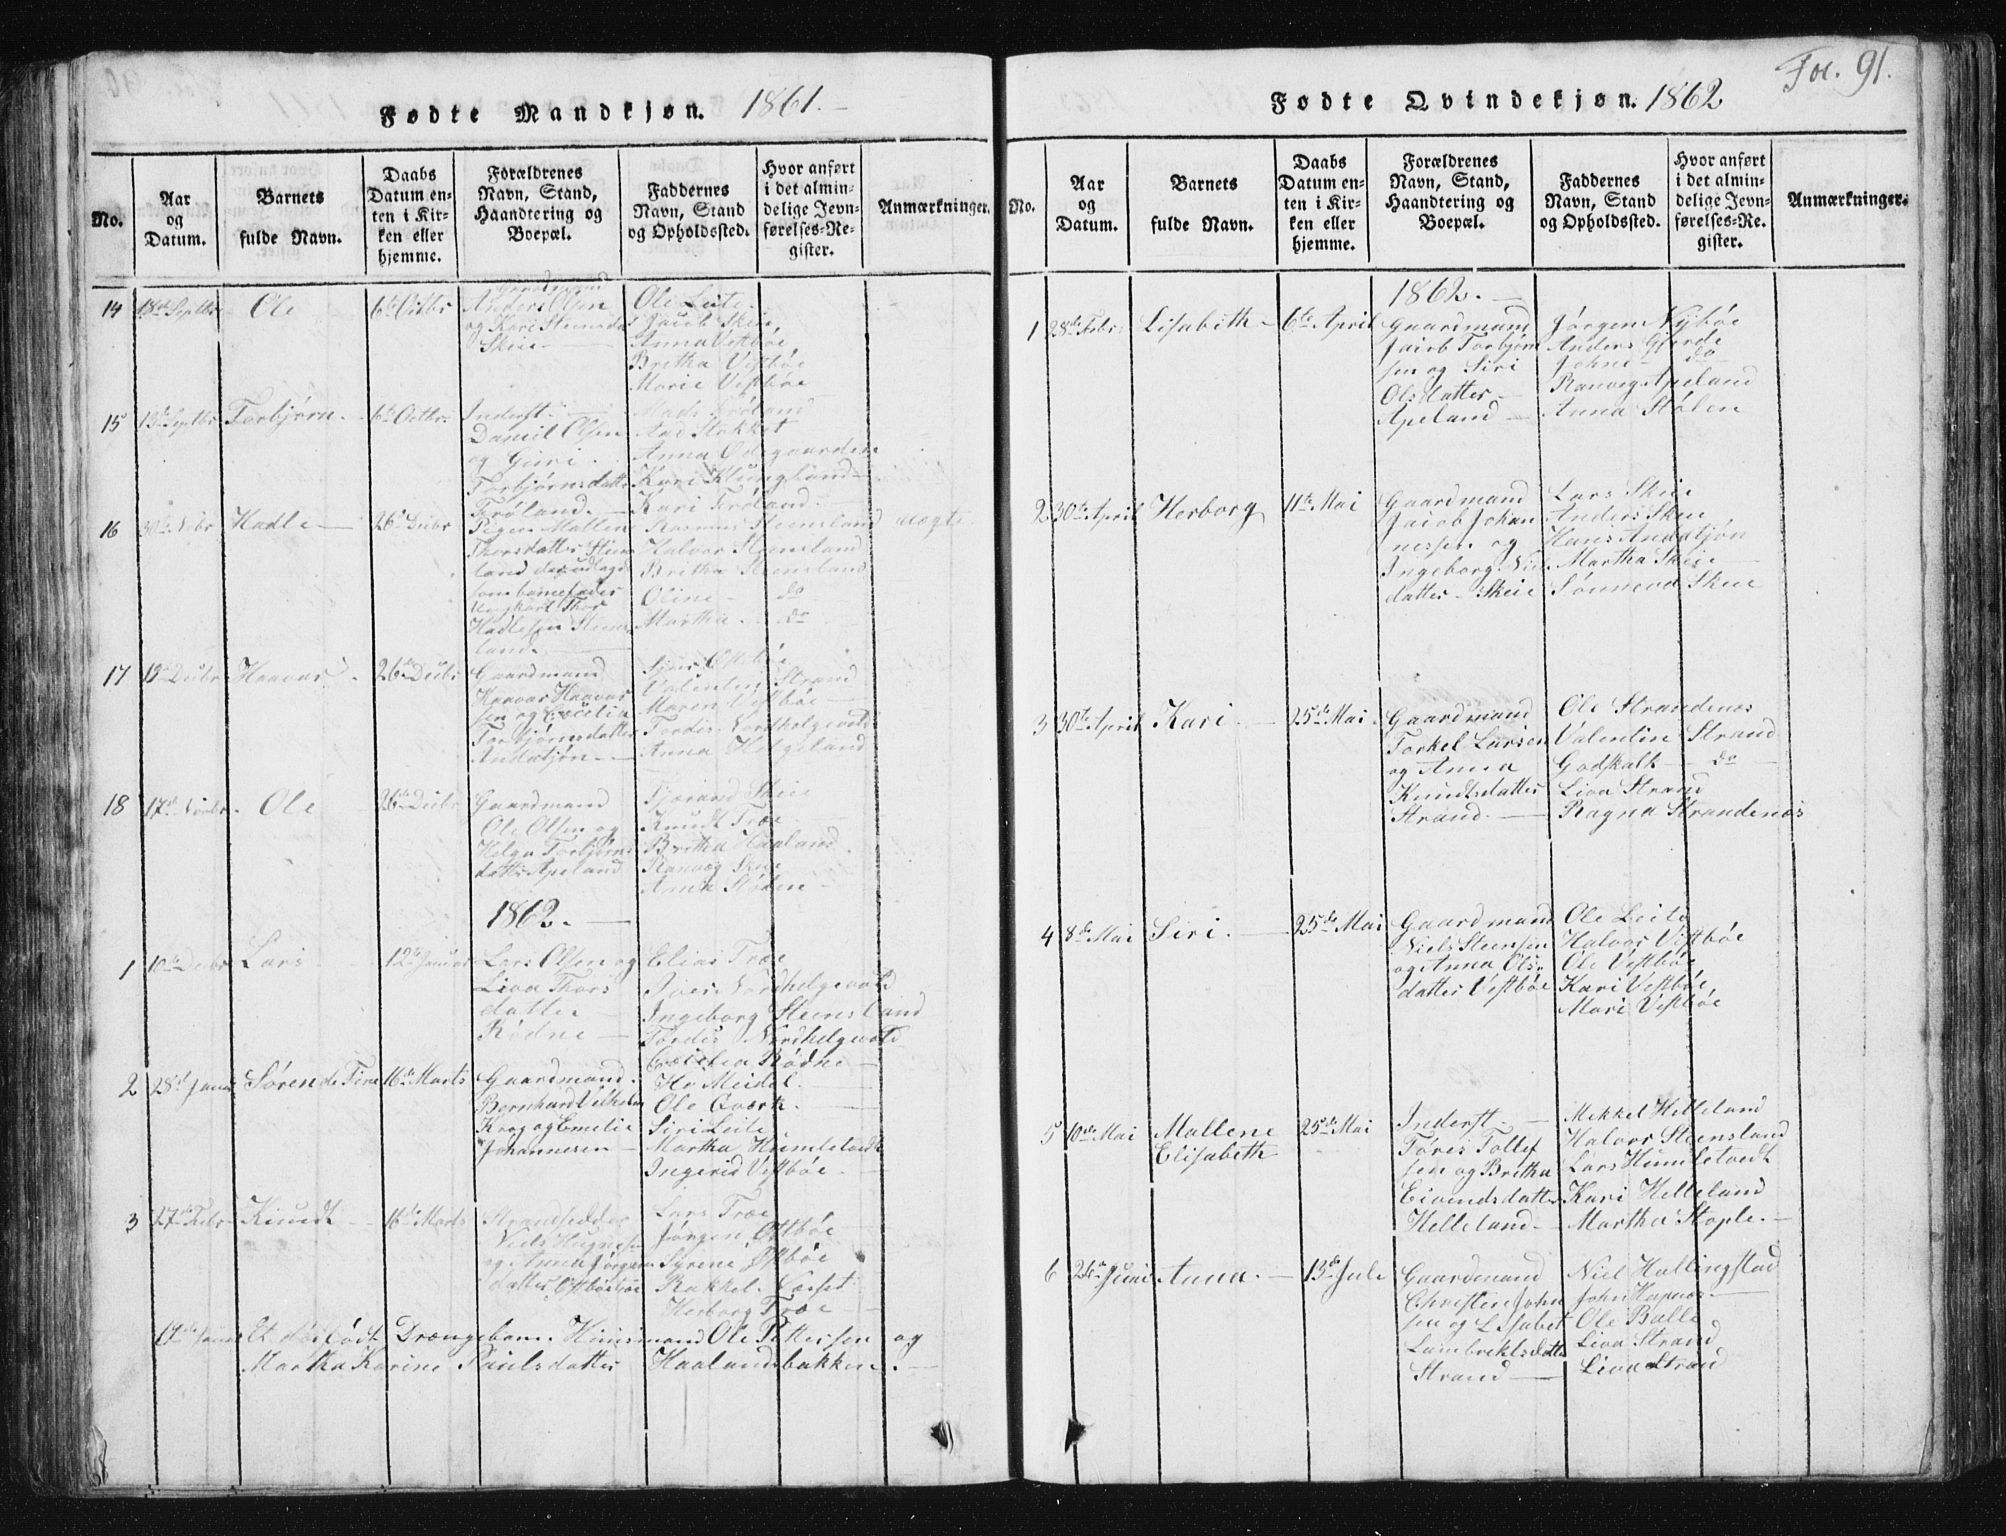 Fødte Mandkjøn. 1861.
No.
Aar
og
Datum.
Barnets
fulde Navn.
Daabs
Datum en-
ten i Kir-
ken eller
hjemme.
Forældrenes
Navn, Stand,
Haandtering og
Boepæl.
Faddernes
Navn, Stand
og Opholdssted.
Hvor anført
i det almin-
delige Jevn-
førelses-Re-
gister.
Anmærkninger.
14 18de Septbr Ole 6te Octbr
Gaardmand
Anders Olsen
og Kari Steensdat
Skeie
Ole Leite
Jacob Skeie,
Anna Vestbøe
Britha Vestbøe
Marie Vestbøe
15 13de Septbr Torbjørn 6te Octbr
Inderst
Daniel Olsen
og Guri
Torbjørnsdatter
Frøland
Mads Frøland
And Stakket
Anna Ødegaarden
Kari Klungland
Kari Frøland
16 Hadle 26de Decbr
Pigen Mallene
Thorsdatter Steens
land
som barnefader
Ungkarl Thor
Hadlesen Steens
land
Rasmus Steensland
Halvor Steensland
Britha Steensland
Oline do
Martha do
uægte
17 Decbr Haavar 26de Decbr
Gaardmand
Haavar Haavar
sen og Cecilia
Torbjørnsdatter
Andatjøn
Valentin Strand
Maren Vestbøe
Tordis Nordhelgevold
Anna Helgeland
18 17de Ole 26de Decbr
Gaardmand
Ole Olsen og
Helga Torbjørns
datter Apeland
Tjærand Skeie
Knudt Træe
Britha Haaland
Ranveg Skeie
Anna Stølen
1862.
1 10de Decbr Lars 12te Januar
Lars Olsen og
Liva Thors
datter
Rødne
Elias Træe
Iver Nordhelgevold
Ingeborg Steensland
Tordis Nordhelgevold
Cecilia Rødne
2 28de Januar Søren de Fine 16de Marts
Gaardmand
Bernhard Vilhelm
Krog og Emelie
Johannesen
Hr Meidel
Ole Qværk
Siri Leite
Martha Humletvedt
Ingerid Vestbøe
3 27de Febr Knudt 16de Marts
Strandsidder
Niels
og Anna Jørgens
datter
Lars Træe
Jørgen Østbøe
Syrene Østbøe
Rakkel
Herborg Træe
17de Januar Et dødfødt Drængebarn. Huusmand Ole Pettersen og
Martha Karine Paulsdatter Haalandsbakken.
Fol. 91.
Fødte Qvindekjøn. 1862
No.
Aar
og
Datum.
Barnets
fulde Navn.
Daabs
Datum en-
ten i Kir-
ken eller
hjemme.
Forældrenes
Navn, Stand,
Haandtering og
Boepæl.
Faddernes
Navn, Stand
og Opholdssted.
Hvor anført
i det almin-
delige Jevn-
førelses-Re-
gister.
Anmærkninger.
1862.
1 28de Febr: Lisabeth 6te April
Gaardmand
Jacob Torbjørn
sen og Siri
Olsdatter
Apeland
Jørgen Nybøe
Anders Gjerde
Johne do
Ranveg Apeland
Anna Stølen
2 30te April Herborg 11te Mai
Gaardmand
Jacob Johan
nessen og
Ingeborg Niels
datter Skeie
Lars Skeie
Anders Skeie
Hans Andatjøn
Martha Skeie
Sønneva Skeie
3 30te April Kari 25de Mai
Gaardmand
Torkel Larsen
og Anna
Knudtsdatter
Strand
Ole Strandenæs
Valentin Strand
Godskalk do
Liva Strand
Ragna Strandenæs
4 8de Mai Siri 25de Mai
Gaardmand
Niels Steensen
og Anna Ols-
datter Vestbøe
Ole Leite
Halvor Vestbøe
Ole Vestbøe
Kari Vestbøe
Mari Vestbøe
5 10de Mai Mallene
Elisabeth 25de Mai
Inderst
Tøres Tollef
sen og Britha
Eivendsdatter
Helleland
Mikkel Helleland
Halvor Steensland
Lars Humletvedt
Kari Helleland
Martha Stople.
6 Juni Anna 13de Jule
Gaardmand
Christen John
sen og Lisabet
Lambrektsdatter
Strand
Niel Hallingstad
John Hapnæs
Ole Balle
Liva Strand
Liva Strand